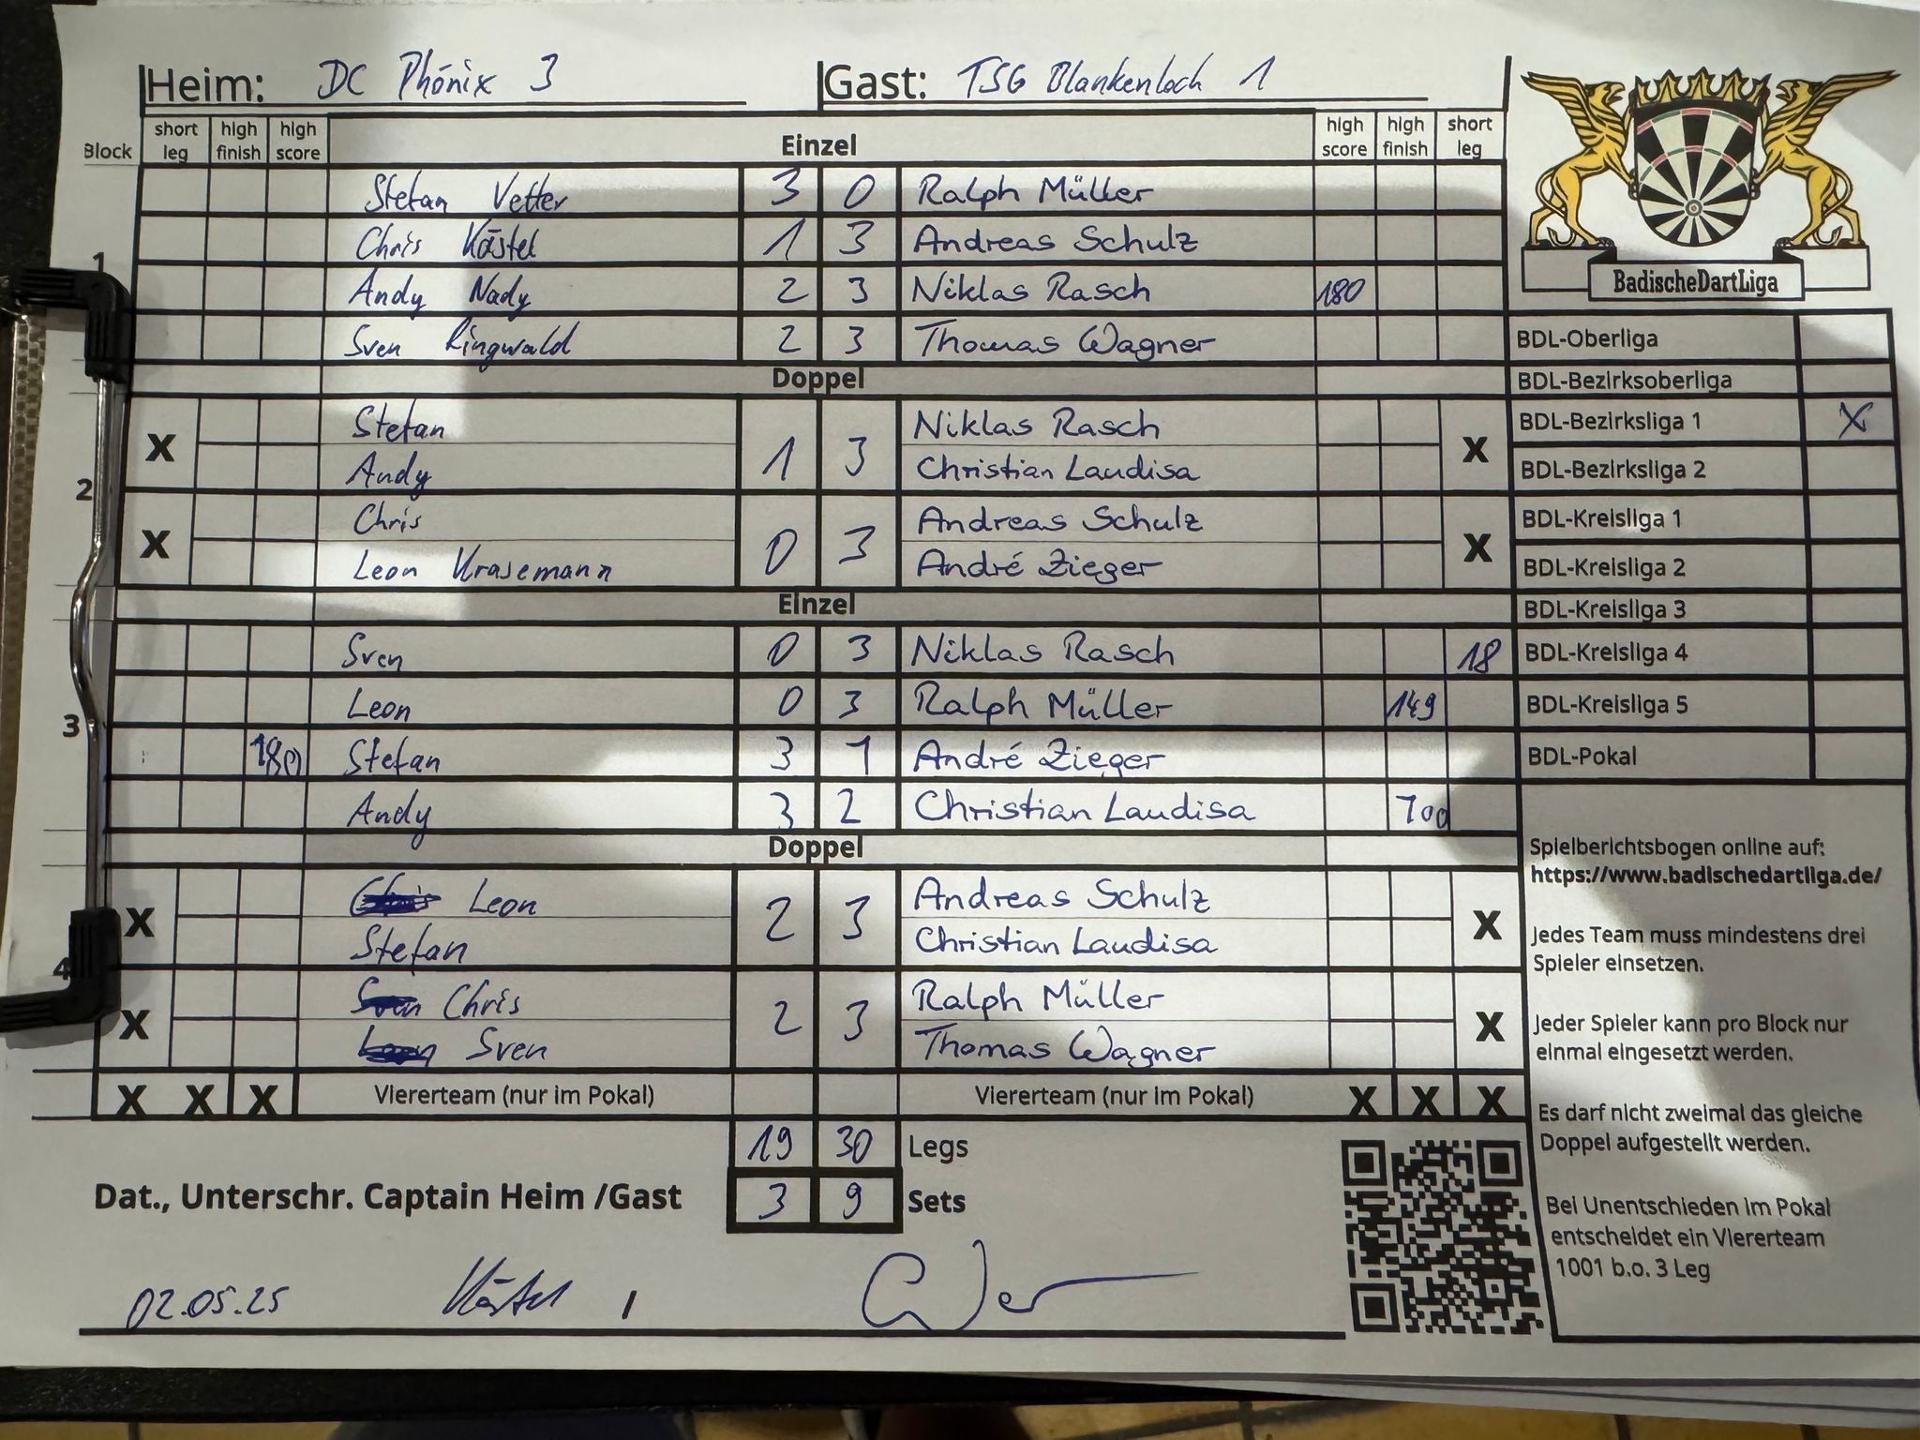 Heim: DC Phönix 3 Gast: TSG Blankenloch 1
Block short leg high finish high score Einzel high score high finish short leg
1
Stefan Vetter 3 0 Ralph Müller
Chris Kästel 1 3 Andreas Schulz
Andy Nady 2 3 Niklas Rasch 180
Sven Ringwald 2 3 Thomas Wagner
Doppel
2
X Stefan 1 3 Niklas Rasch X
Andy Christian Laudisa
X Chris 0 3 Andreas Schulz X
Leon Krasemann André Zieger
Einzel
3
Sven 0 3 Niklas Rasch 18
Leon 0 3 Ralph Müller 149
180 Stefan 3 1 André Zieger
Andy 3 2 Christian Laudisa 100
Doppel
4
X Leon 2 3 Andreas Schulz X
Stefan Christian Laudisa
X Chris 2 3 Ralph Müller X
Sven Thomas Wagner
X X X Viererteam (nur im Pokal) Viererteam (nur im Pokal) X X X
19 30 Legs
Dat., Unterschr. Captain Heim /Gast 3 9 Sets
02.05.25 Kästel /
BadischeDartLiga
BDL-Oberliga
BDL-Bezirksoberliga
BDL-Bezirksliga 1 X
BDL-Bezirksliga 2
BDL-Kreisliga 1
BDL-Kreisliga 2
BDL-Kreisliga 3
BDL-Kreisliga 4
BDL-Kreisliga 5
BDL-Pokal
Spielberichtsbogen online auf:
https://www.badischedartliga.de/
Jedes Team muss mindestens drei
Spieler einsetzen.
Jeder Spieler kann pro Block nur
einmal eingesetzt werden.
Es darf nicht zweimal das gleiche
Doppel aufgestellt werden.
Bei Unentschieden im Pokal
entscheidet ein Viererteam
1001 b.o. 3 Leg